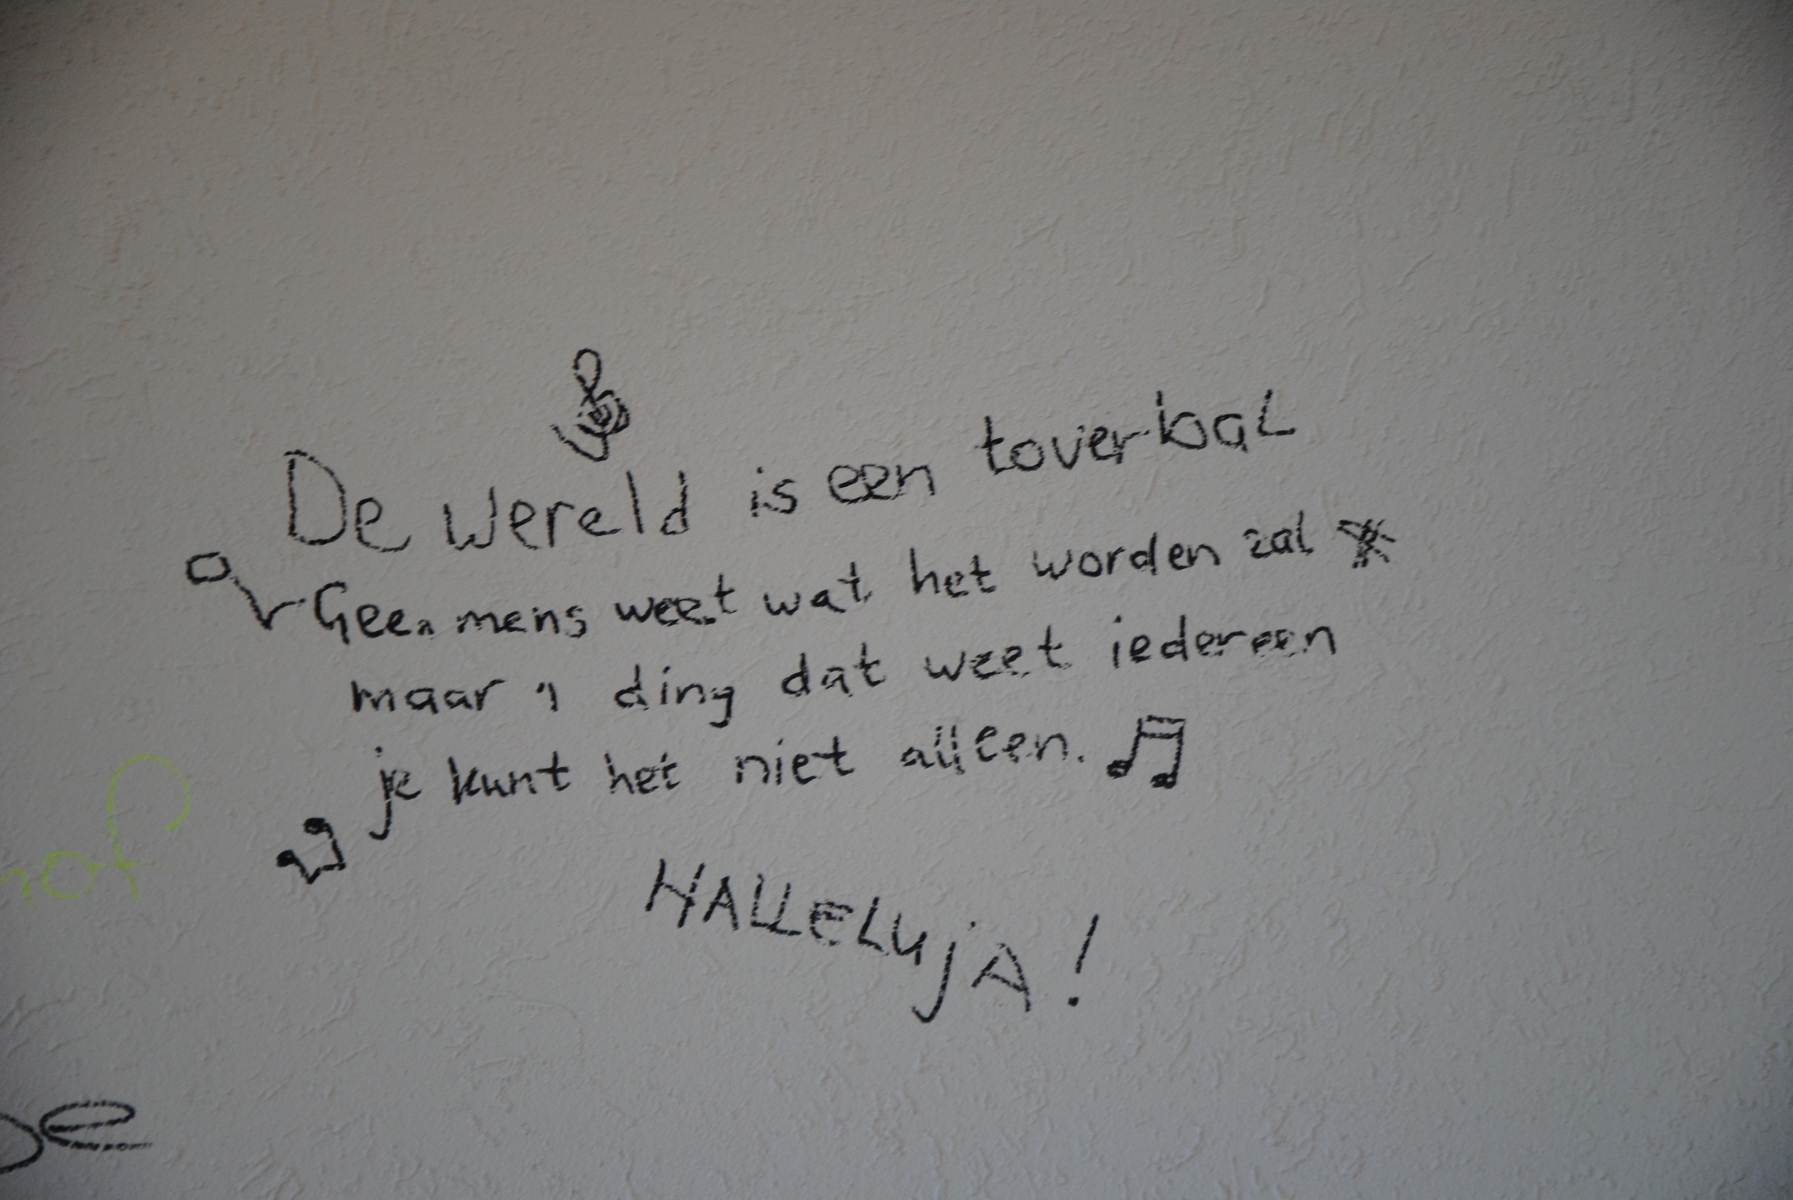 De wereld is een toverbal
Geen mens weet wat het worden zal
maar 1 ding dat weet iedereen
je kunt het niet alleen.
HALLELUjA!